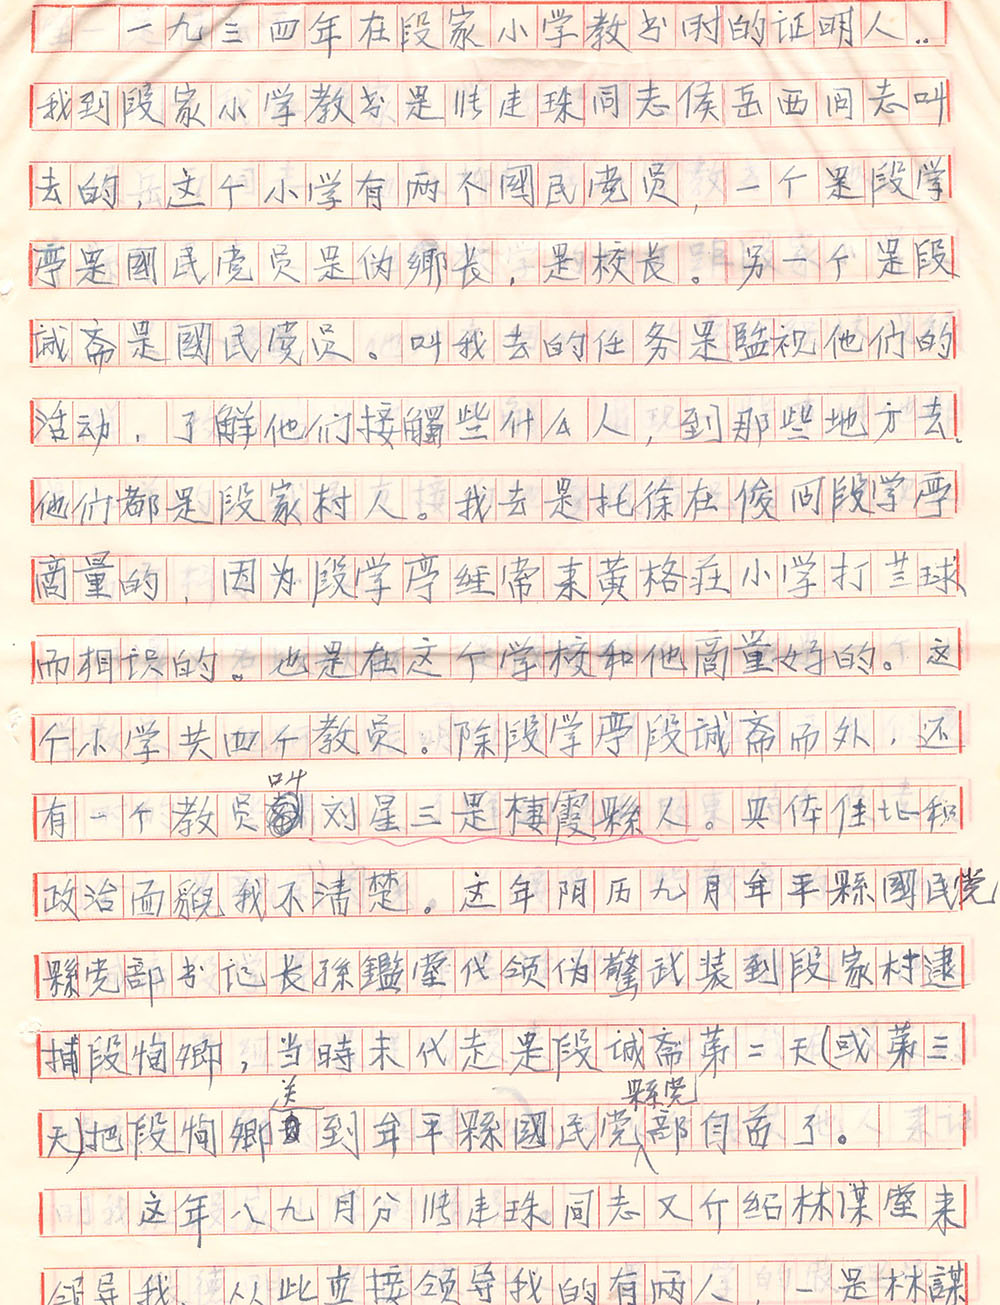 一九三四年在段家小学教书时的证明人..
我到段家小学教书是张连珠同志侯岳西同志叫
去的，这个小学有两个國民党员，一个是段学
亭是國民党员是伪鄉长，是校长。另一个是段
诚斋是國民党员。叫我去的任务是監視他们的
活动，了解他们接觸些什么人，到那些地方去。
他们都是段家村人。我去是托徐在俊同段学亭
商量的，因为段学亭经常来黄格庄小学打兰球
而相识的。也是在这个学校和他商量好的。这
个小学共四个教员。除段学亭段诚斋而外，还
有一个教员叫刘星三是棲霞縣人。具体住址和
政治面貌我不清楚。这年阴历九月牟平縣國民党
縣党部书记长孫鑑堂代领伪警武装到段家村逮
捕段恂鄉，当時未代走是段诚斋第二天(或第三
天)把段恂鄉送到牟平縣國民党縣党部自首了。
这年八九月分张连珠同志又介绍林谋堂来
领导我，从此直接领导我的有两人，一是林謀